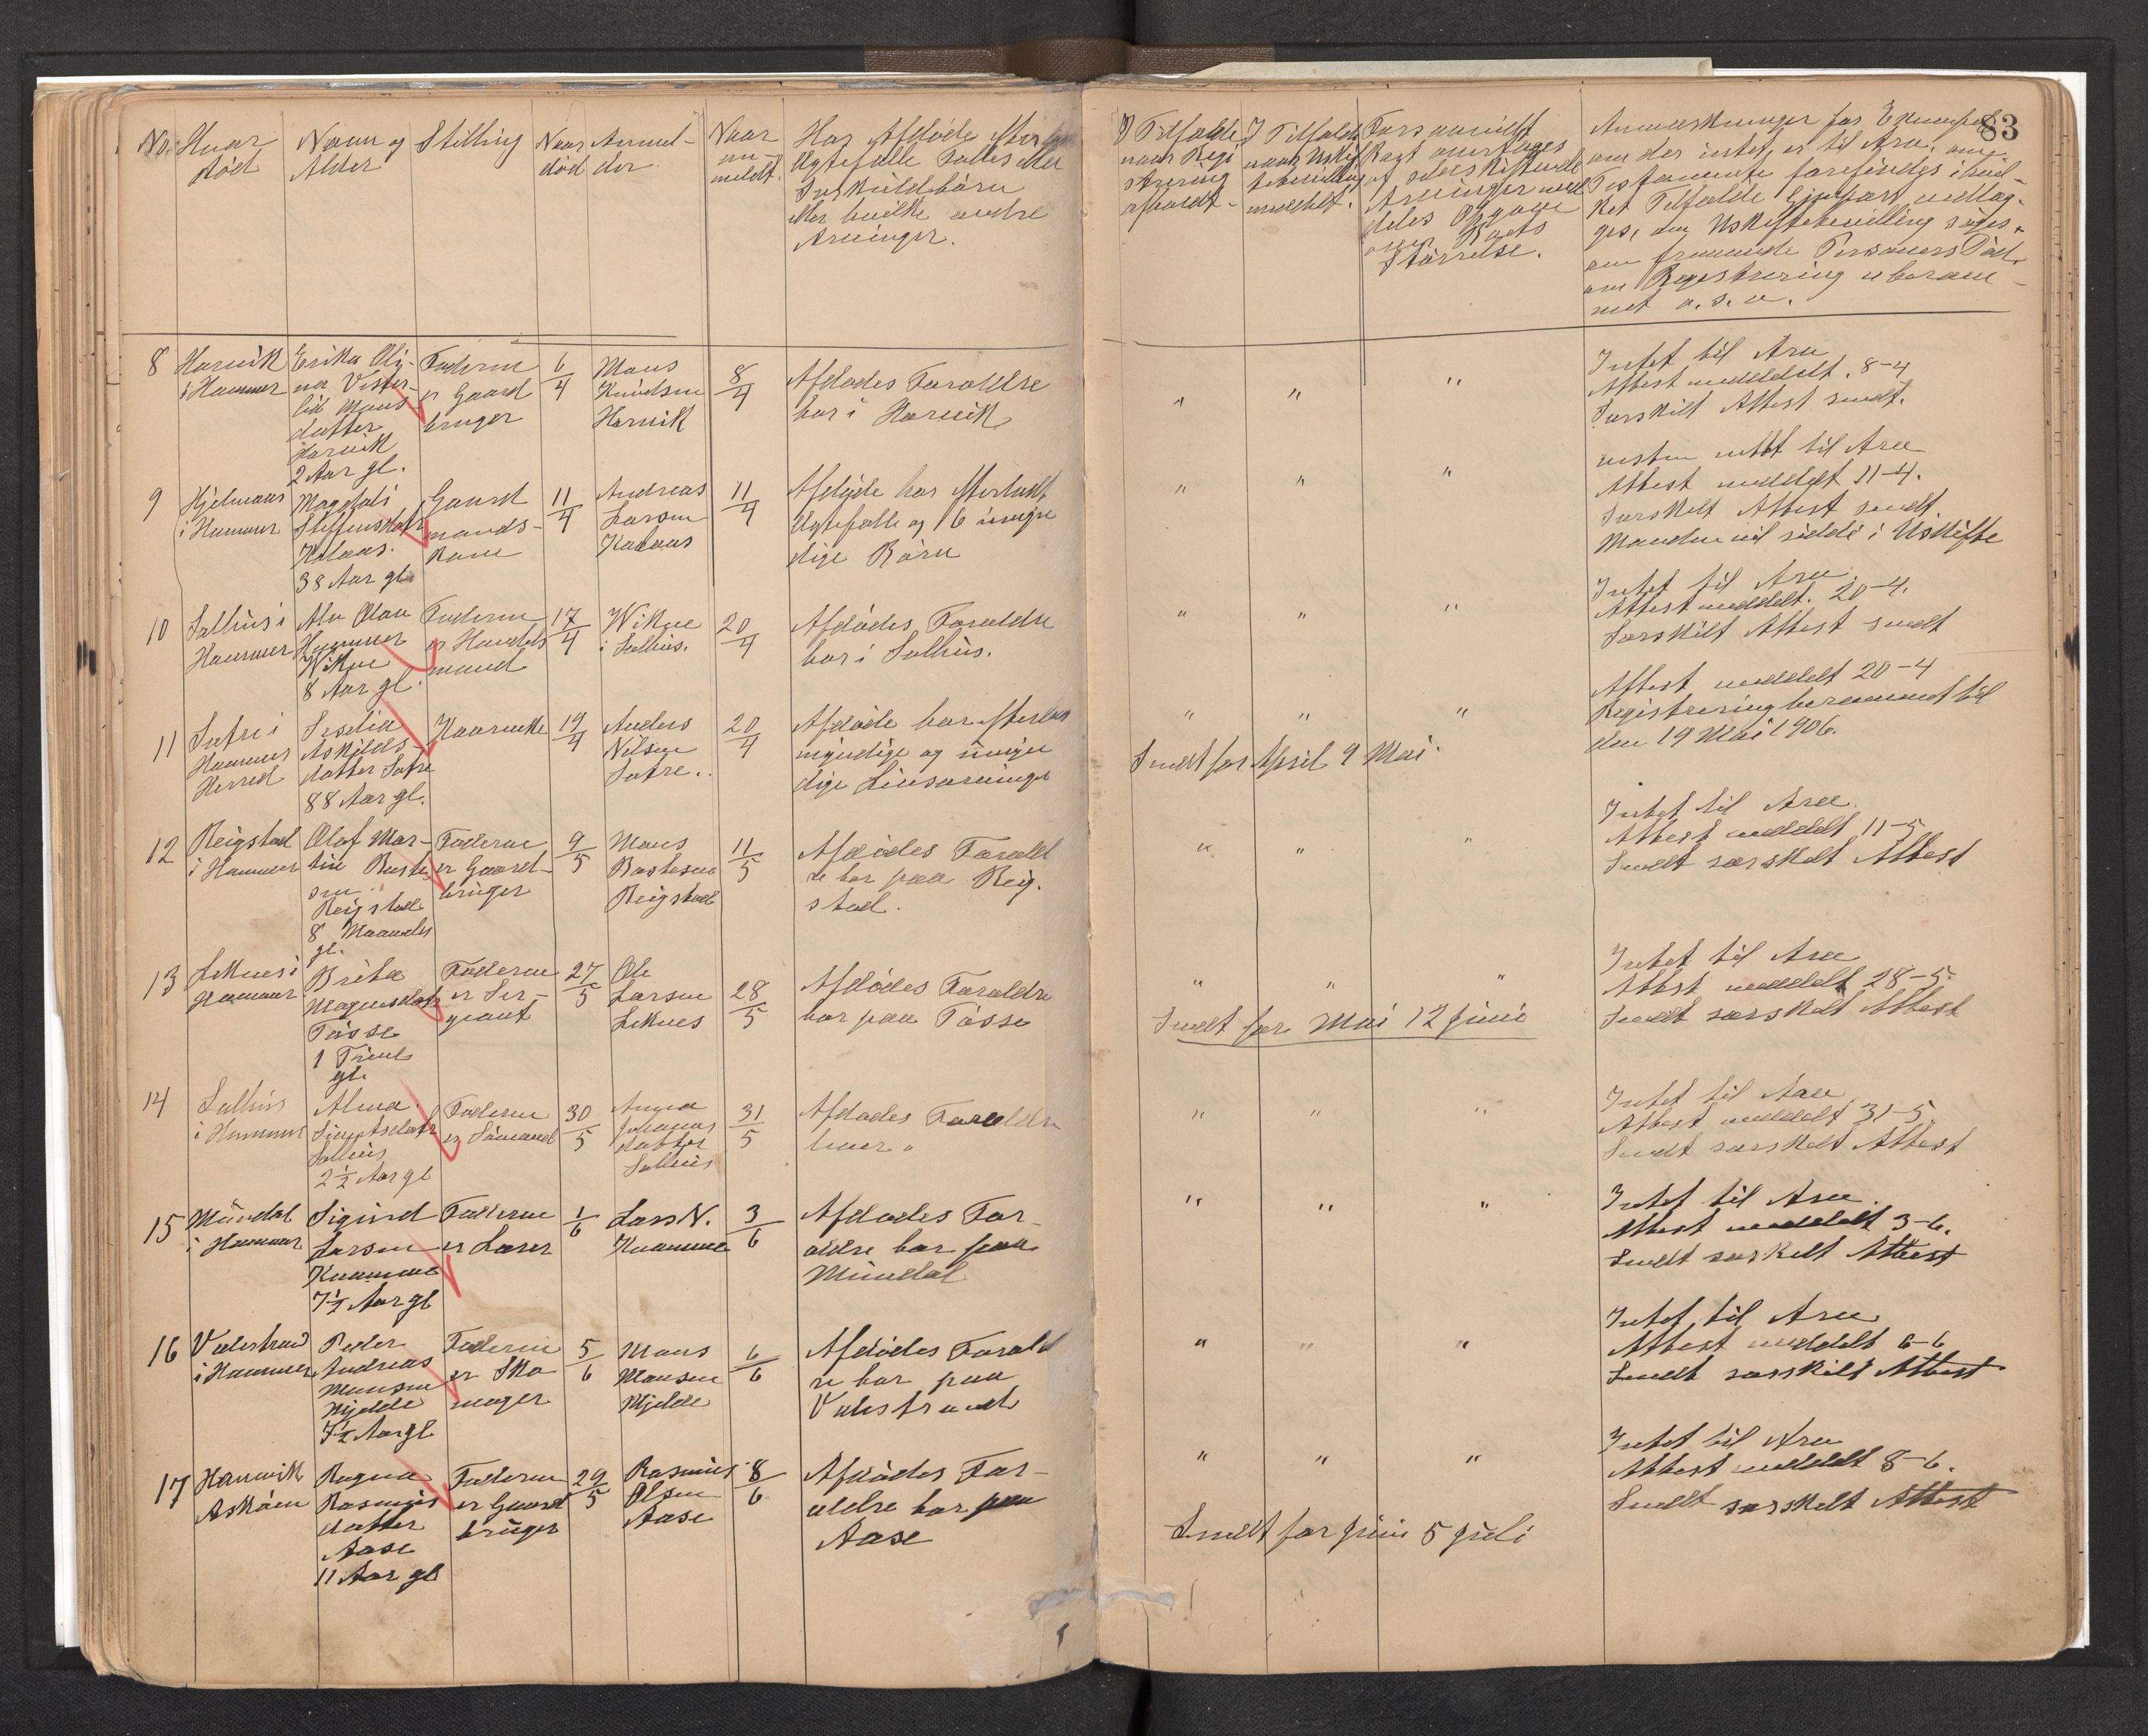 83
No. Hvor død
Navn og Alder
Stilling
Naar død
Anmelder
Naar anmeldt.
Har Afdøde efterladt
Ægtefælle Fælles eller
Særkuldbørn
eller hvilke andre
Arvinger.
I Tilfælde
naar Registrering
afholdt.
I Tilfælde
naar Uskiftebevilling
meddelt.
Forsaavidt
Boet overtages
af selvskiftende
Arvinger meddeles Opgave
over Boets
Størrelse.
Anmærkninger for Exempel
om der intet er til Arv, om
Testamente forefindes i hvilket Tilfælde
ges, om Uskiftebevilling søges,
om fremmede Personers Død,
om Registrering er berammet o. s. v.
8
Horvik
i Hammer
Erika Olinea
Mansdatter
Horvik
2 Aar gl.
Faderen
er Gaard
bruger
6/4
Mons
Knudsen
Horvik
8/4
Afdødes Forældre
bor i Horvik
" " "
Intet til Arv
Attest meddeldt. 8-4
Særskilt Attest sendt.
9
Hjelmaas
i Hammer
Magdali
Steffensdatr
Kalaas.
38 Aar gl.
Gaard
mands-
kone
11/4
Andreas
Larsen
Kalaas
11/4
Afdøde har efterladt
Ægtefælle og 6 umyn
dige Børn
" " "
næsten intet til Arv
Attest meddelt 11-4.
Særskilt Attest sendt.
Manden vil sidde i Uskifte
10
Salhus i
Hammer
Alv Olav
Hammer
Wikne
8 Aar gl.
Faderen
er Handels
mand
17/4
Wikne
i Salhus.
20/4
Afdødes Forældre
bor i Salhus.
" " "
Intet til Arv
Attest meddelt. 20-4.
Særskilt Attest sendt
11
Sætre i
Hammer
Herred
Seselia
Askilds-
datter Sætre
88 Aar gl.
Kaarenke
19/4
Anders
Nilsen
Sætre.
20/4
Afdøde har efterladt
myndige og umyn
dige Livsarvinger
" " "
Attest meddelt 20-4
Registrering berammet til
den 19 Mai 1906.
Sendt for April 9 Mai.
12
Reigstad
i Hammer
Olaf Mar-
tin Raste
sen
Reigstad
8 Maaneder
gl.
Faderen
er Gaard-
bruger
9/5
Mons
Rastesen
Reigstad
11/5
Afdødes Foræld
re bor paa Reig.
stad.
" " "
Intet til Arv.
Attest meddelt 11-5
Sendt særskilt Attest
13
Leknes i
Hammer
Brita
Magnusdatr
Tøsse
1 Time
gl.
Faderen
er Ser-
geant
27/5
Ole
Larsen
Leknes
28/5
Afdødes Forældre
bor paa Tøsse
" " "
Intet til Arv
Attest meddelt 28-5.
Sendt særskilt Attest
Sendt for Mai 12 Juni
14
Salhus
i Hammer
Alma
Salhus
2½ Aar gl
Faderen
er Sømand
30/5
Anna
Johannes
datter
Salhus
31/5
Afdødes Forældre
lever.
" " "
Intet til Arv
Attest meddelt 31-5.
Sendt særskilt Attest
15
Mundal
i Hammer
Sigurd
Larsen
Kvamme
7½ Aar gl
Faderen
er Lærer
1/6
Lars N.
Kvamme
3/6
Afdødes For-
ældre bor paa
Mundal
" " "
Intet til Arv.
Attest meddelt 3-6.
Sendt særskilt Attest
16
Valestrand
i Hammer
Peder
Andreas
Monsen
Mjelde
7½ Aar gl
Faderen
er Sko
mager
5/6
Mons
Monsen
Mjelde
6/6
Afdødes Foræld
re bor paa
Valestrand
" " "
Intet til Arv
Attest meddelt 6-6
Sendt særskilt Attest
17
Hanevik
Askøen
Ragna
Rasmus
datter
Aase
11 Aar gl
Faderen
er Gaard
bruger
29/5
Rasmus
Olsen
Aase
8/6
Afdødes For-
ældre bor paa
Aase
" " "
Intet til Arv
Attest meddelt 8-6.
Sendt særskilt Attest
Sendt for Juni 5 Juli